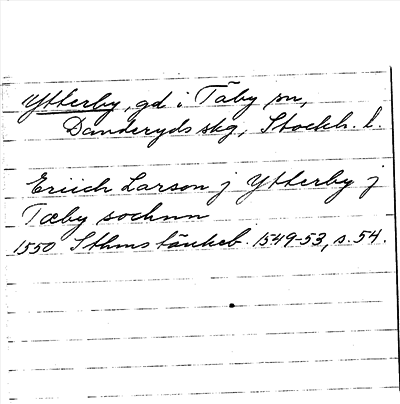 Ytterby, gd i Täby sn,
Danderyds skg, Stockh. l.
Eriich Larson j Ytterby j
Tæby sochnn
1550 Sthms tänkeb. 1549-53, s. 54.